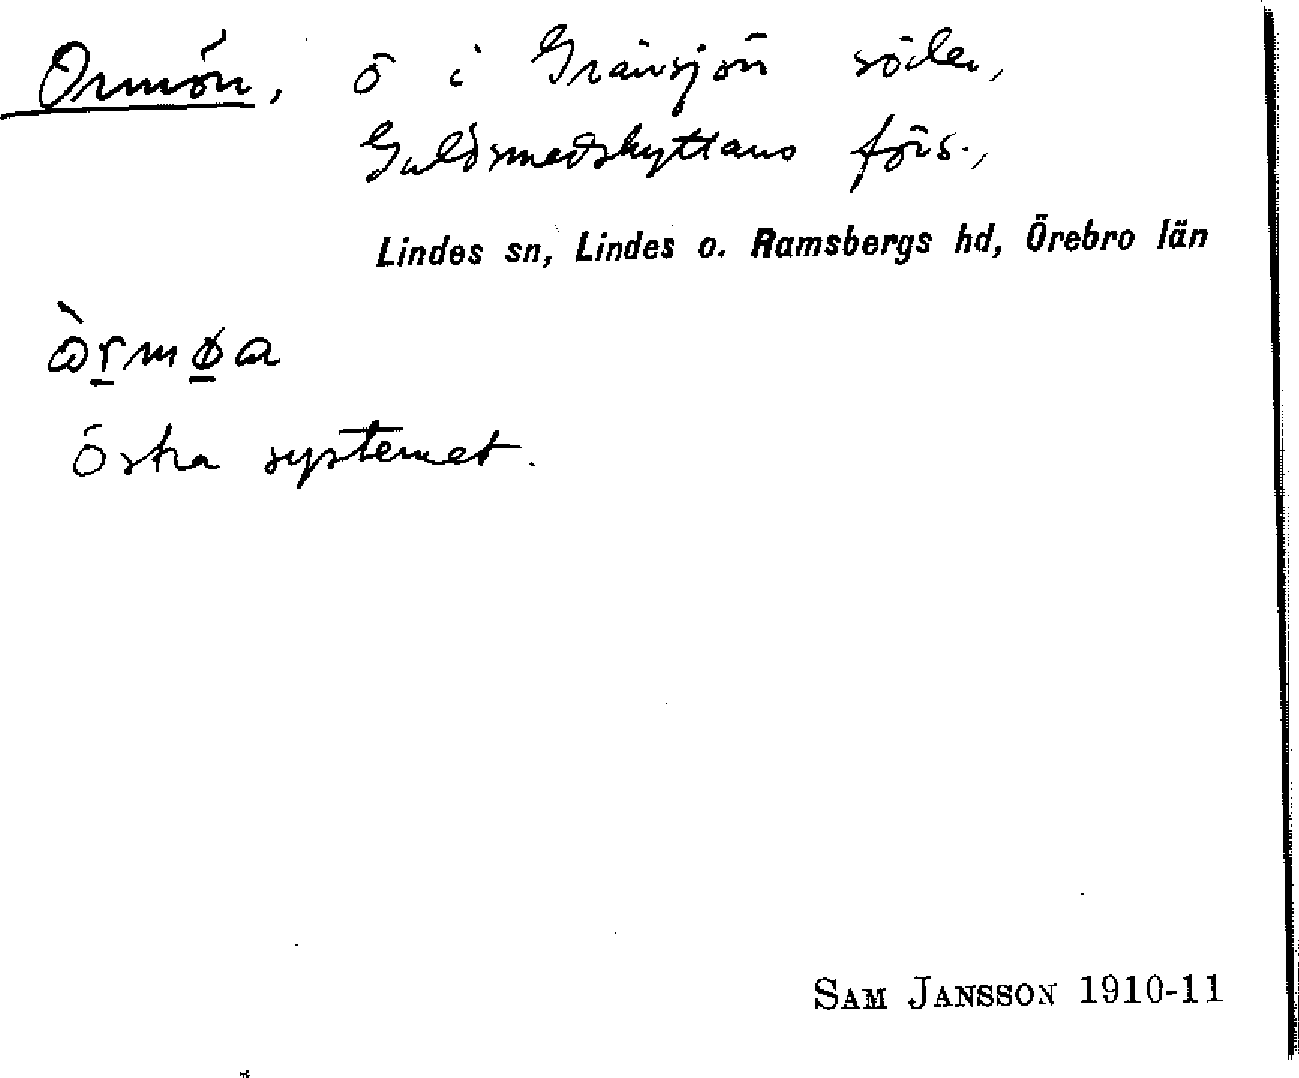 Ormön, ö i Gränsjön söder,
Guldsmedshyttans förs.,
Lindes sn, Lindes o. Ramsbergs hd, Örebro län
òrmøa
Östra systemet.
SAM JANSSON 1910-11